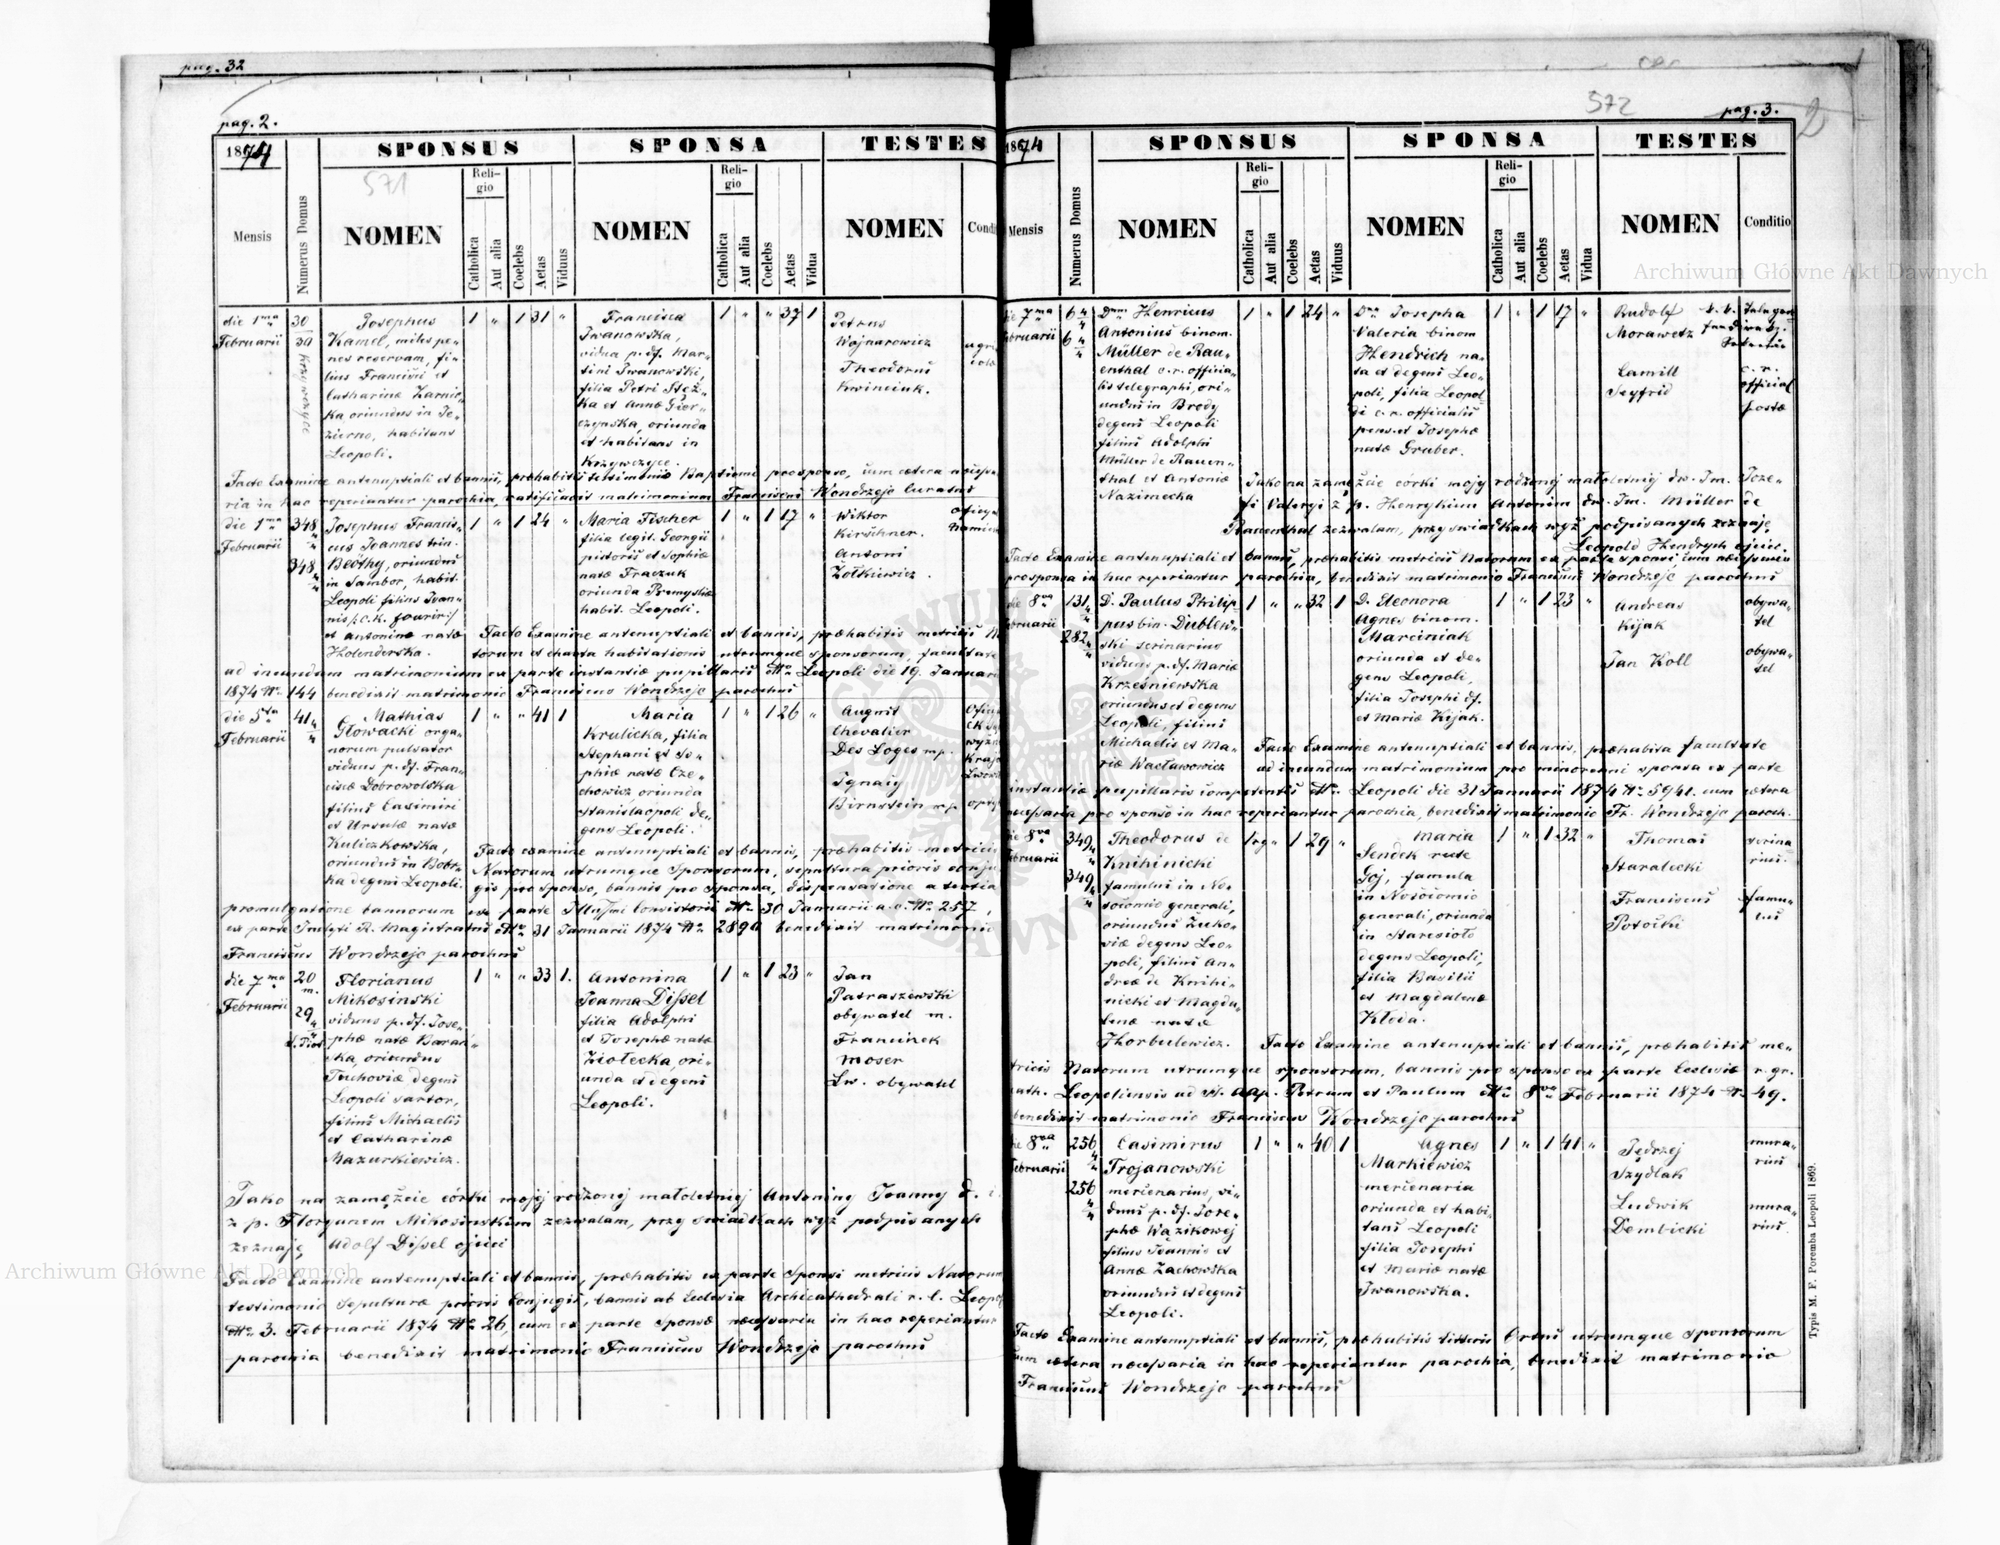 pag. 32
pag. 2.
1874
SPONSUS
SPONSA
TESTES
571
Mensis
Numerus Domus
NOMEN
Religio
Catholica
Aut alia
Coelebs
Aetas
Viduus
NOMEN
Religio
Catholica
Aut alia
Coelebs
Aetas
Vidua
NOMEN
Condi
die 1ma Februarii
30
30
Krzywczyce
Josephus
Kamel, miles pe-
nes reservam, fi-
lius Francisci et
Catharinæ Zarnic-
ka, oriundus in Je-
zierno, habitans
Leopoli.
1 " 1 31 "
Francisca
Iwanowska,
vidua p. df. Mar-
tini Iwanowski,
filia Petri Steż-
ka et Annæ Gior-
czyńska, oriunda
et habitans in
Krzywczyce.
1 " " 37 1
Petrus
Wojnarowicz
Theodorus
Kwinciuk.
agri
cola
Facto Examine antenuptiali et bannis, præhabitis testimonio Baptismi pro sponso, cum cætera necessa-
ria in hac reperiantur parochia, ratificavit matrimonium Franciscus Wondrzejc Curatus
die 1ma Februarii
348 4/4
348 4/4
Josephus Francis-
cus Joannes trin.
Beöthy, oriundus
in Sambor, habit.
Leopoli filius Joan-
nis /: c. K. fourir :/
et Antoninæ natæ
Holenderska.
1 " 1 24 "
Maria Fischer
filia legit. Georgii
pistoris et Sophiæ
natæ Fraczuk
oriunda Premysliæ
habit. Leopoli.
1 " 1 17 "
Wiktor
Kirschner.
Antoni
Żółkiewicz.
Facto Examine antenuptiali et bannis, præhabitis metricis Na
torum et charta habitationis utrumque sponsorum, facultate
ad ineundum matrimonium ex parte instantiæ pupillaris dto Leopoli die 19. Januarii
1874 No 144 benedixit matrimonio Franciscus Wondrzejc parochus
die 5ta Februarii
41 4/4
Mathias
Głowacki orga-
norum pulsator
viduus p. df. Fran-
ciscæ Dobrowolska
filius Casimiri
et Ursulæ natæ
Kuliczkowska,
oriundus in Bobr-
ka degens Leopoli.
1 " " 41 1
Maria
Krulicka, filia
Stephani et So-
phiæ natæ Cze-
chowicz, oriunda
Stanislaopoli de-
gens Leopoli.
1 " 1 26 "
August
Chevalier
Des Loges mp.
Ignacy
Birnstein mp.
Facto examine antenuptiali et bannis, præhabitis metricis
Natorum utrumque Sponsorum, sepultura prioris conju-
gis pro sponso, bannis pro sponsa, dispensatione a tertia
promulgatione bannorum ex parte Illustmi Consistorii dto 30 Januarii a. c. No 257,
ex parte Inclyti R. Magistratus dto 31 Januarii 1874 No 2890 benedixit matrimonio
Franciscus Wondrzejc parochus
die 7ma Februarii
20 m.
29 4/4
Florianus
Mikosinski
viduus p. df. Jose-
phæ natæ Barań-
ska, oriundus
Tuchoviæ degens
Leopoli sartor,
filius Michaelis
et Catharinæ
Mazurkiewicz.
1 " " 33 1.
Antonina
Joanna Dissel
filia Adolphi
et Josephæ natæ
Ziołecka, ori-
unda et degens
Leopoli.
1 " 1 23 "
Jan
Patraszewski
obywatel m.
Franciszek
Moser
Lw. obywatel
Jako na zamężcie córki mojéj rodzonéj małoletniéj Antoniny Joanny D.
z p. Floryanem Mikosinskim zezwalam, przy świadkach wyż podpisanych
zeznaję Adolf Dissel ojciec
Facto Examine antenuptiali et bannis, præhabitis ex parte Sponsi metricis Natorum
testimonio Sepulturæ prioris Conjugis, bannis ab Ecclesia Archicathedrali r. l. Leopol
dto 3. Februarii 1874 No 26, cum ex parte Sponsæ necessaria in hac reperiantur
parochia benedixit matrimonio Franciscus Wondrzejc parochus
572
pag. 3.
2
1874
SPONSUS
SPONSA
TESTES
Mensis
Numerus Domus
NOMEN
Religio
Catholica
Aut alia
Coelebs
Aetas
Viduus
NOMEN
Religio
Catholica
Aut alia
Coelebs
Aetas
Vidua
NOMEN
Conditio
die 7ma Februarii
6 4/4
6 4/4
Dnus Henricus
Antonius binom.
Müller de Rau-
enthal c. r. officia-
lis telegraphi, ori-
undus in Brody
degens Leopoli
filius Adolphi
Müller de Rauen-
thal et Antoniæ
Nazimecka
1 " 1 24 "
Dna Josepha
Valeria binom
Hendrich na-
ta et degens Leo-
poli, filia Leopol-
di c. r. officialis
pens. et Josephæ
natæ Gruber.
1 " 1 17 "
Rudolf
Morawetz
Camill
Seyfrid
c. r.
official
postæ
Jako na zamężcie córki mojéj rodzonéj małoletniéj dw. Im. Joze-
fi Valeryi z p. Henrykiem Antonim dw. Im. Müller de
Rauenthal zezwalam, przy świadkach wyż podpisanych zeznaję
Leopold Hendrych ojciec.
Facto Examine antenuptiali et bannis, præhabitis metricis Natorum ex parte sponsi, cum necessaria
pro sponsa in hac reperiantur parochia, benedixit matrimonio Franciscus Wondrzejc parochus
die 8va Februarii
131 4/4
282 4/4
D. Paulus Philip-
pus bin. Dublew-
ski serinarius
viduus p. df. Mariæ
Krześniewska
oriundus et degens
Leopoli, filius
Michaelis et Ma-
riæ Wacławowicz
1 " " 32 1
D. Eleonora
Agnes binom.
Marciniak
oriunda et de-
gens Leopoli,
filia Josephi df.
et Mariæ Kijak.
1 " 1 23 "
Andreas
Kijak
Jan Koll
obywa-
tel
obywa-
tel
Facto Examine antenuptiali et bannis, præhabita facultate
ad ineundum matrimonium pro minorenni sponsa ex parte
instantiæ pupillaris competentis dto Leopoli die 31 Januarii 1874 No 5941. cum cætera
necessaria pro sponso in hac reperiantur parochia, benedixit matrimonio Fr. Wondrzejc paroch.
die 8va Februarii
349 4/4
349 4/4
Theodorus de
Knihinicki
famulus in No-
socomio generali,
oriundus Zucho-
viæ degens Leo-
poli, filius An-
dreæ de Knihi-
nicki et Magda-
lenæ natæ
Horbulewicz.
1 rg " 1 29 "
Maria
Sendek recte
Goj, famula
in Nosocomio
generali, oriunda
in Staresioło
degens Leopoli,
filia Basilii
et Magdalenæ
Kłoda.
1 " 1 32 "
Thomas
Staralecki
Franciscus
Potocki
serina-
rius.
famu-
lus
Facto Examine antenuptiali et bannis, præhabitis me-
tricis Natorum utrumque sponsorum, bannis pro sponso ex parte Ecclesiæ r. gr.
cath. Leopoliensis ad SS. App. Petrum et Paulum dto 8va Februarii 1874 No 49.
benedixit matrimonio Franciscus Wondrzejc parochus
die 8va Februarii
256 4/4
256 4/4
Casimirus
Trojanowski
mercenarius, vi-
duus p. df. Jose-
phæ Wązikowéj
filius Joannis et
Annæ Zachowska
oriundus et degens
Leopoli.
1 " " 40 1
Agnes
Markiewicz
mercenaria
oriunda et habi-
tans Leopoli
filia Josephi
et Mariæ natæ
Iwanowska.
1 " 1 41 "
Jędrzej
Szydlak
Ludwik
Dembicki
mura-
rius
mura-
rius.
Facto Examine antenuptiali et bannis, præhabitis litteris Ortus utrumque sponsorum
cum cætera necessaria in hac reperiantur parochia, benedixit matrimonio
Franciscus Wondrzejc parochus
Typis M. F. Poremba Leopoli 1869.
Archiwum Główne Akt Dawnych
Archiwum Główne Akt Dawnych